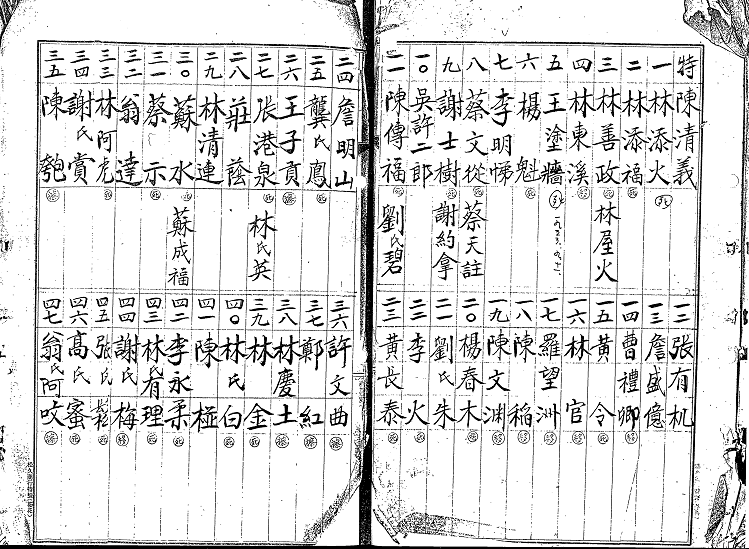 特 陳清義 死
一 林添火
二 林添福 死
三 林善政 死 林屋火
四 林東溪
五 王塗牆 死
六 楊魁 死
七 李明悌
八 蔡文從 死 蔡天註
九 謝士樹 死 謝約拿
一〇 吳許二郎
一一 陳傳福 死 劉氏碧
一二 張有机
一三 詹盛億
一四 曹禮卿 移
一五 黃令 死
一六 林官 移
一七 羅望洲 移
一八 陳稲 移
一九 陳文渊 移
二〇 楊春木 死
二一 劉氏朱 死
二二 李火 死
二三 黃長泰 移
二四 詹明山
二五 龔氏鳳 死
二六 王子貢
二七 張港泉 死 林氏英
二八 莊蔭
二九 林清連
三〇 蘇水 死 蘇成福
三一 蔡示 死
三二 翁達
三三 林阿虎
三四 謝氏賞 死
三五 陳匏
三六 許文曲
三七 鄭紅
三八 林慶土
三九 林金 死
四〇 林氏白 死
四一 陳極
四二 李永柔 死
四三 林氏有理 死
四四 謝氏梅 移
四五 張氏
四六 高氏蜜 死
四七 翁氏阿咬 死